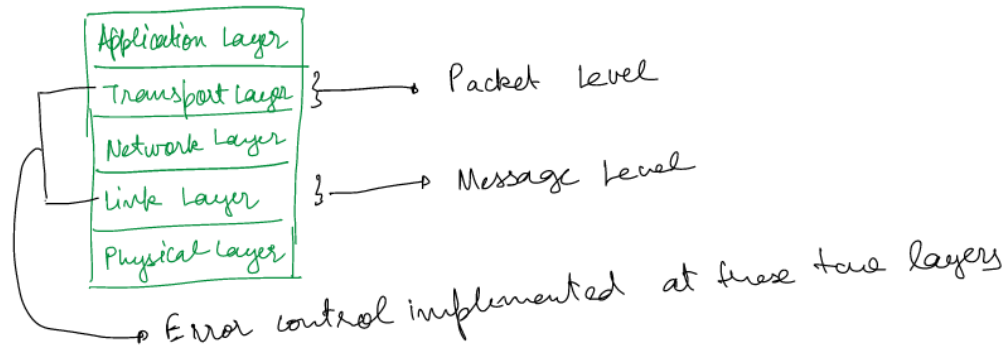 Application Layer
Transport Layer
Packet Level
Network Layer
Link Layer
Message Level
Physical Layer
Error control implemented at these two layers